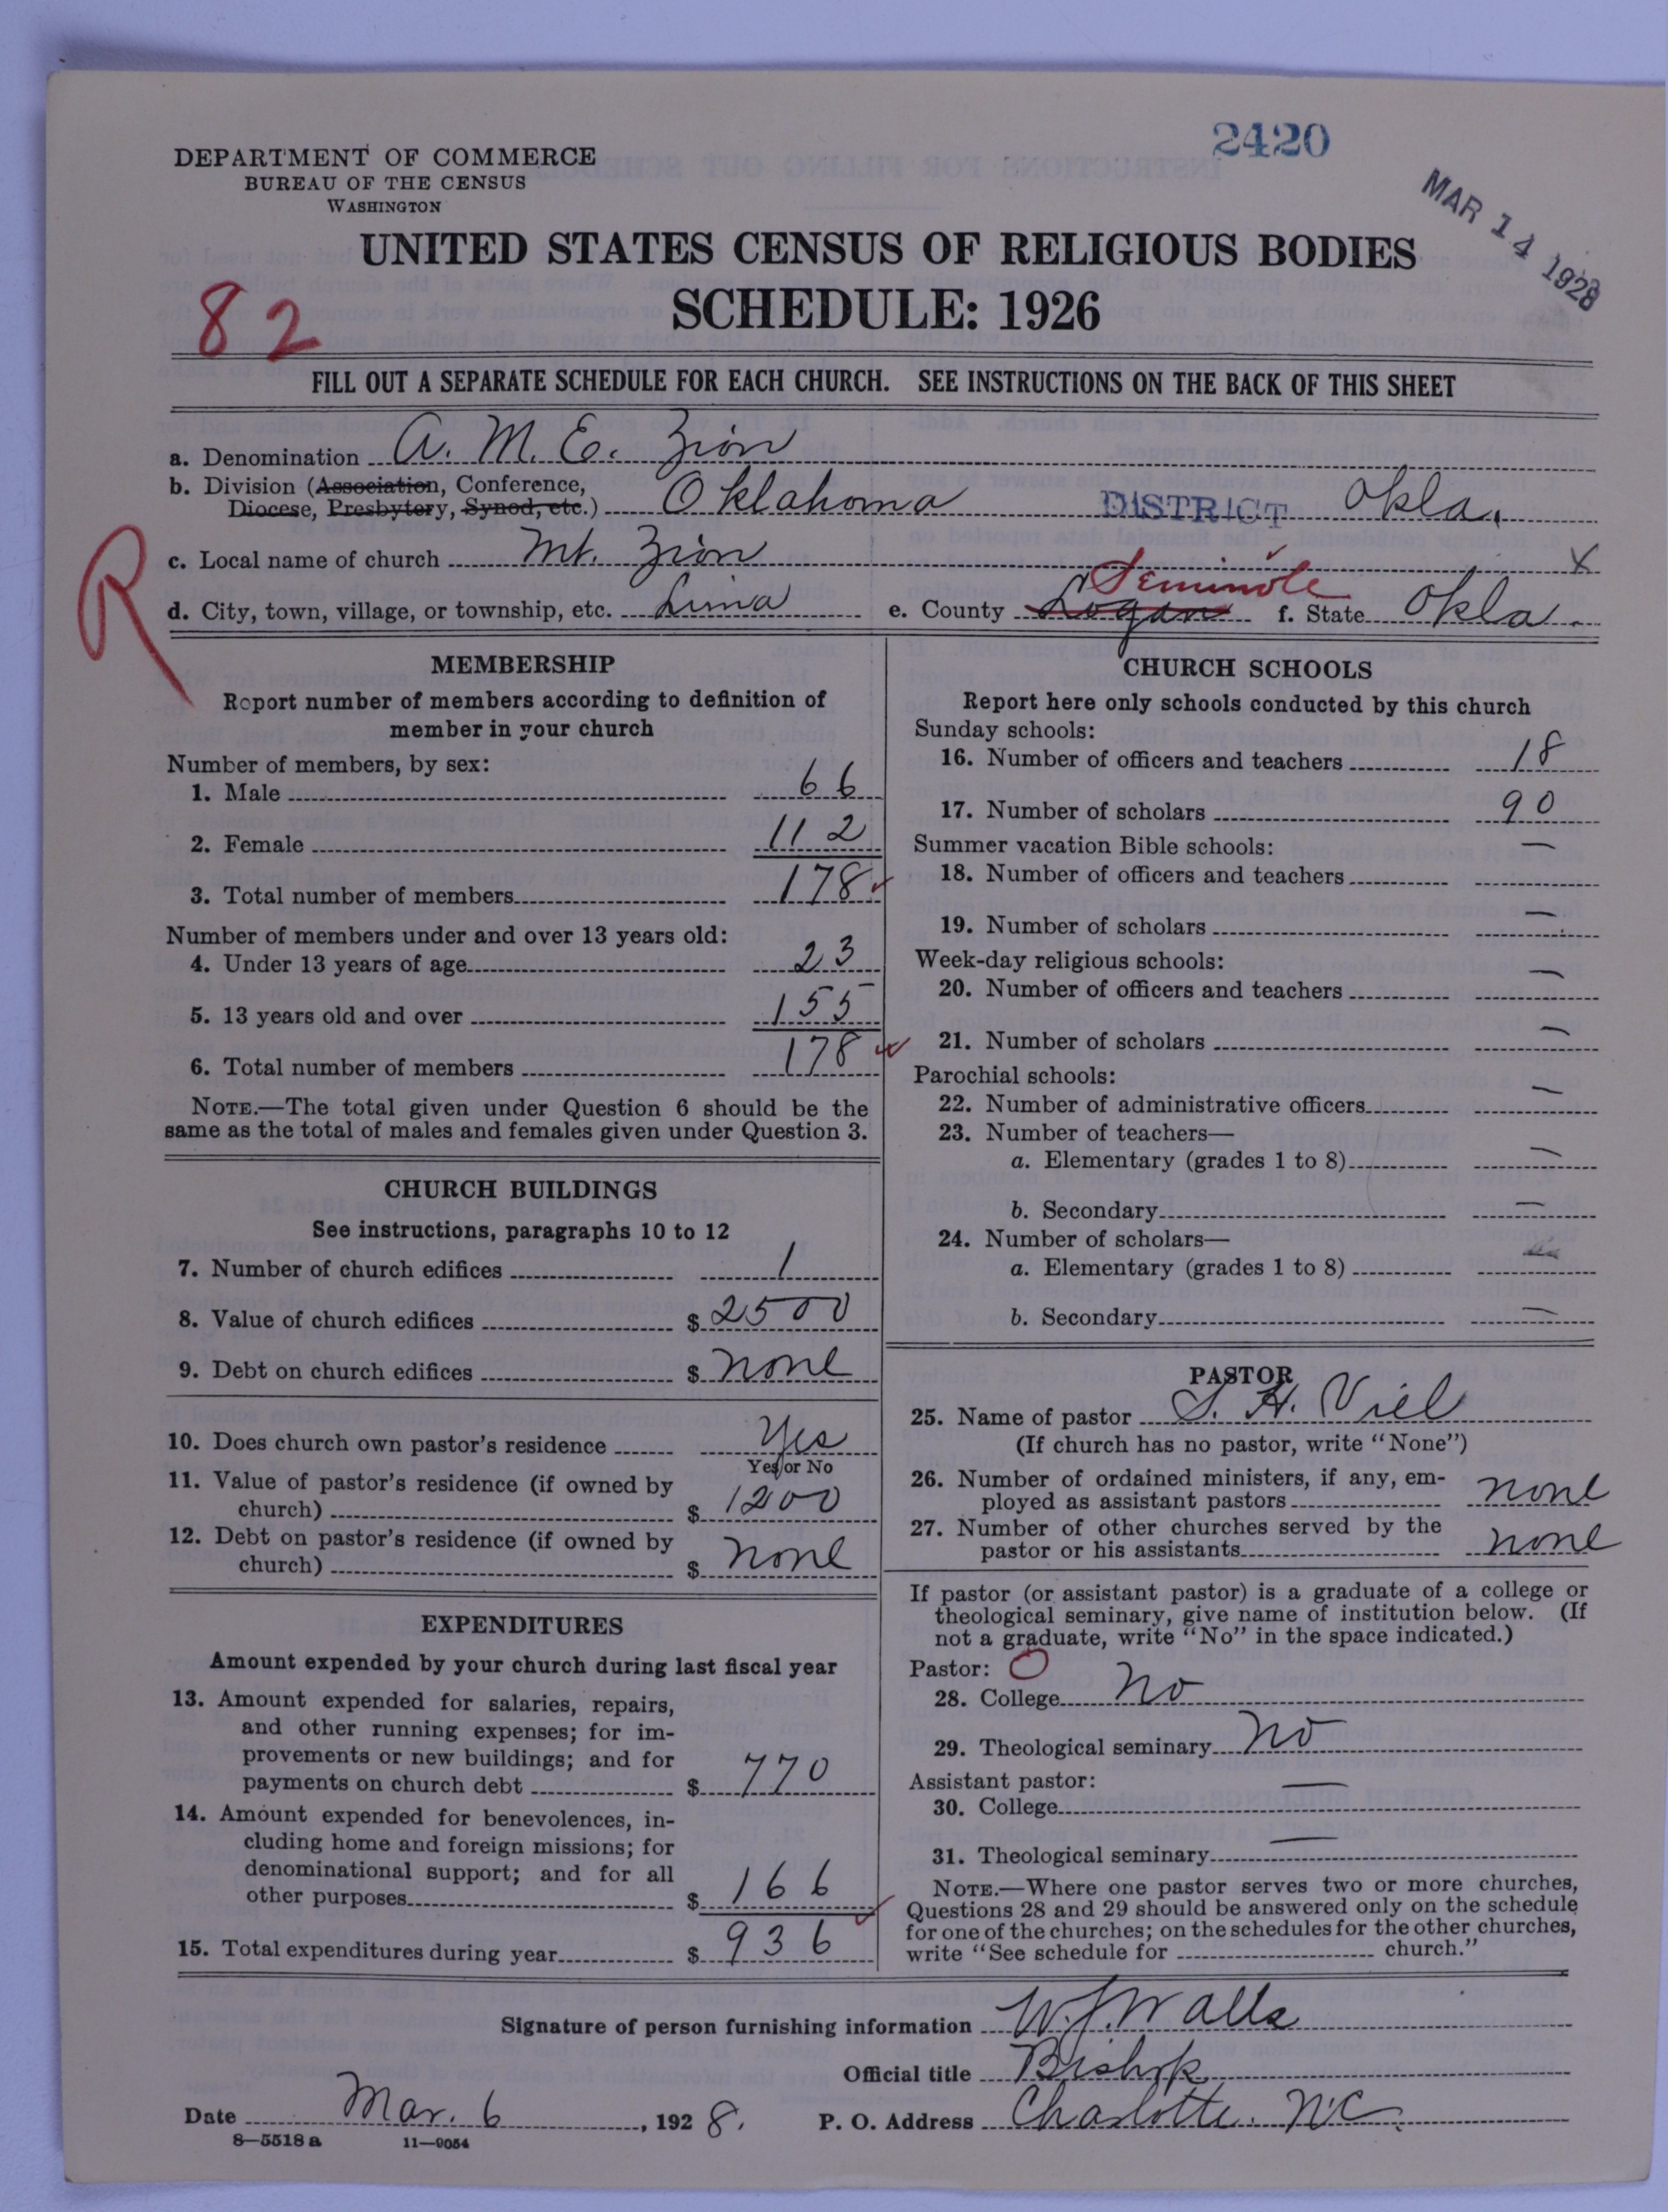 2420
MAR 14 1928
DEPARTMENT OF COMMERCE
BUREAU OF THE CENSUS
WASHINGTON
UNITED STATES CENSUS OF RELIGIOUS BODIES
SCHEDULE: 1926
82
FILL OUT A SEPARATE SCHEDULE FOR EACH CHURCH. SEE INSTRUCTIONS ON THE BACK OF THIS SHEET
a. Denomination A. M. E. Zion
b. Division (Association, Conference,
Diocese, Presbytery, Synod, etc.) Oklahoma DISTRICT Okla.
R
c. Local name of church Mt. Zion X
d. City, town, village, or township, etc. Lima e. County Logan Seminole f. State Okla.
MEMBERSHIP
Report number of members according to definition of
member in your church
Number of members, by sex:
1. Male 66
2. Female 112
3. Total number of members 178
Number of members under and over 13 years old:
4. Under 13 years of age 23
5. 13 years old and over 155
6. Total number of members 178
NOTE.—The total given under Question 6 should be the
same as the total of males and females given under Question 3.
CHURCH BUILDINGS
See instructions, paragraphs 10 to 12
7. Number of church edifices 1
8. Value of church edifices $ 2500
9. Debt on church edifices $ none
10. Does church own pastor's residence Yes
Yes or No
11. Value of pastor's residence (if owned by
church) $ 1200
12. Debt on pastor's residence (if owned by
church) $ none
EXPENDITURES
Amount expended by your church during last fiscal year
13. Amount expended for salaries, repairs,
and other running expenses; for im-
provements or new buildings; and for
payments on church debt $ 770
14. Amount expended for benevolences, in-
cluding home and foreign missions; for
denominational support; and for all
other purposes $ 166
15. Total expenditures during year $ 936
CHURCH SCHOOLS
Report here only schools conducted by this church
Sunday schools:
16. Number of officers and teachers 18
17. Number of scholars 90
Summer vacation Bible schools:
18. Number of officers and teachers —
19. Number of scholars —
Week-day religious schools:
20. Number of officers and teachers —
21. Number of scholars —
Parochial schools:
22. Number of administrative officers —
23. Number of teachers—
a. Elementary (grades 1 to 8) —
b. Secondary —
24. Number of scholars—
a. Elementary (grades 1 to 8)
b. Secondary —
PASTOR
25. Name of pastor S. H. Viel
(If church has no pastor, write "None")
26. Number of ordained ministers, if any, em-
ployed as assistant pastors none
27. Number of other churches served by the
pastor or his assistants none
If pastor (or assistant pastor) is a graduate of a college or
theological seminary, give name of institution below. (If
not a graduate, write "No" in the space indicated.)
Pastor: O
28. College No
29. Theological seminary No
Assistant pastor:
30. College —
31. Theological seminary —
NOTE.—Where one pastor serves two or more churches,
Questions 28 and 29 should be answered only on the schedule
for one of the churches; on the schedules for the other churches,
write "See schedule for church."
Signature of person furnishing information W. J. Walls
Official title Bishop
Date Mar. 6, 1928. P. O. Address Charlotte. N.C.
8—5518 a 11—9054